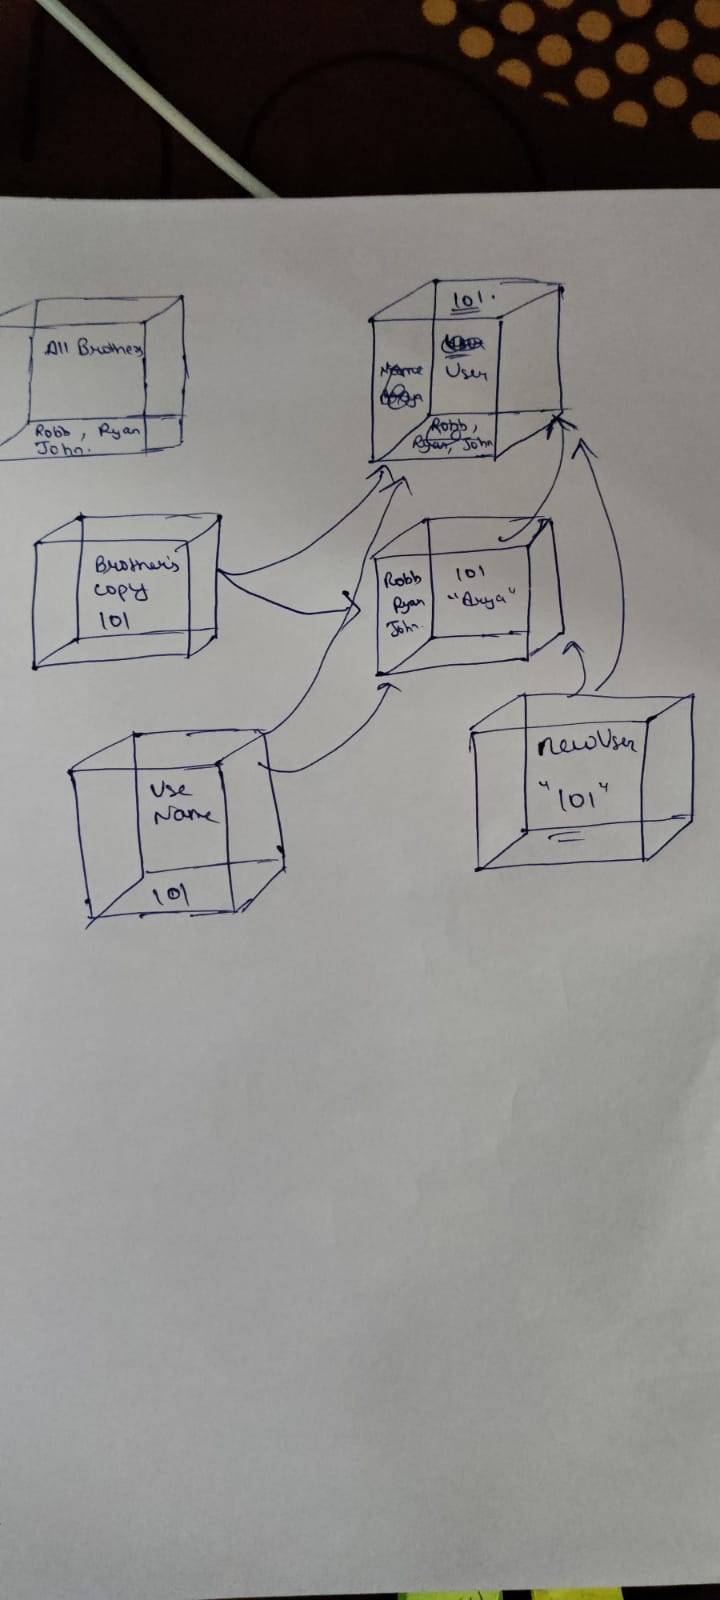 All Brothers
Robb, Ryan
John.
101.
User
Name
Robb,
Ryan, John
Brother's
copy
101
Robb
Ryan
John.
101
"Arya"
Use
Name
101
newUser
"101"